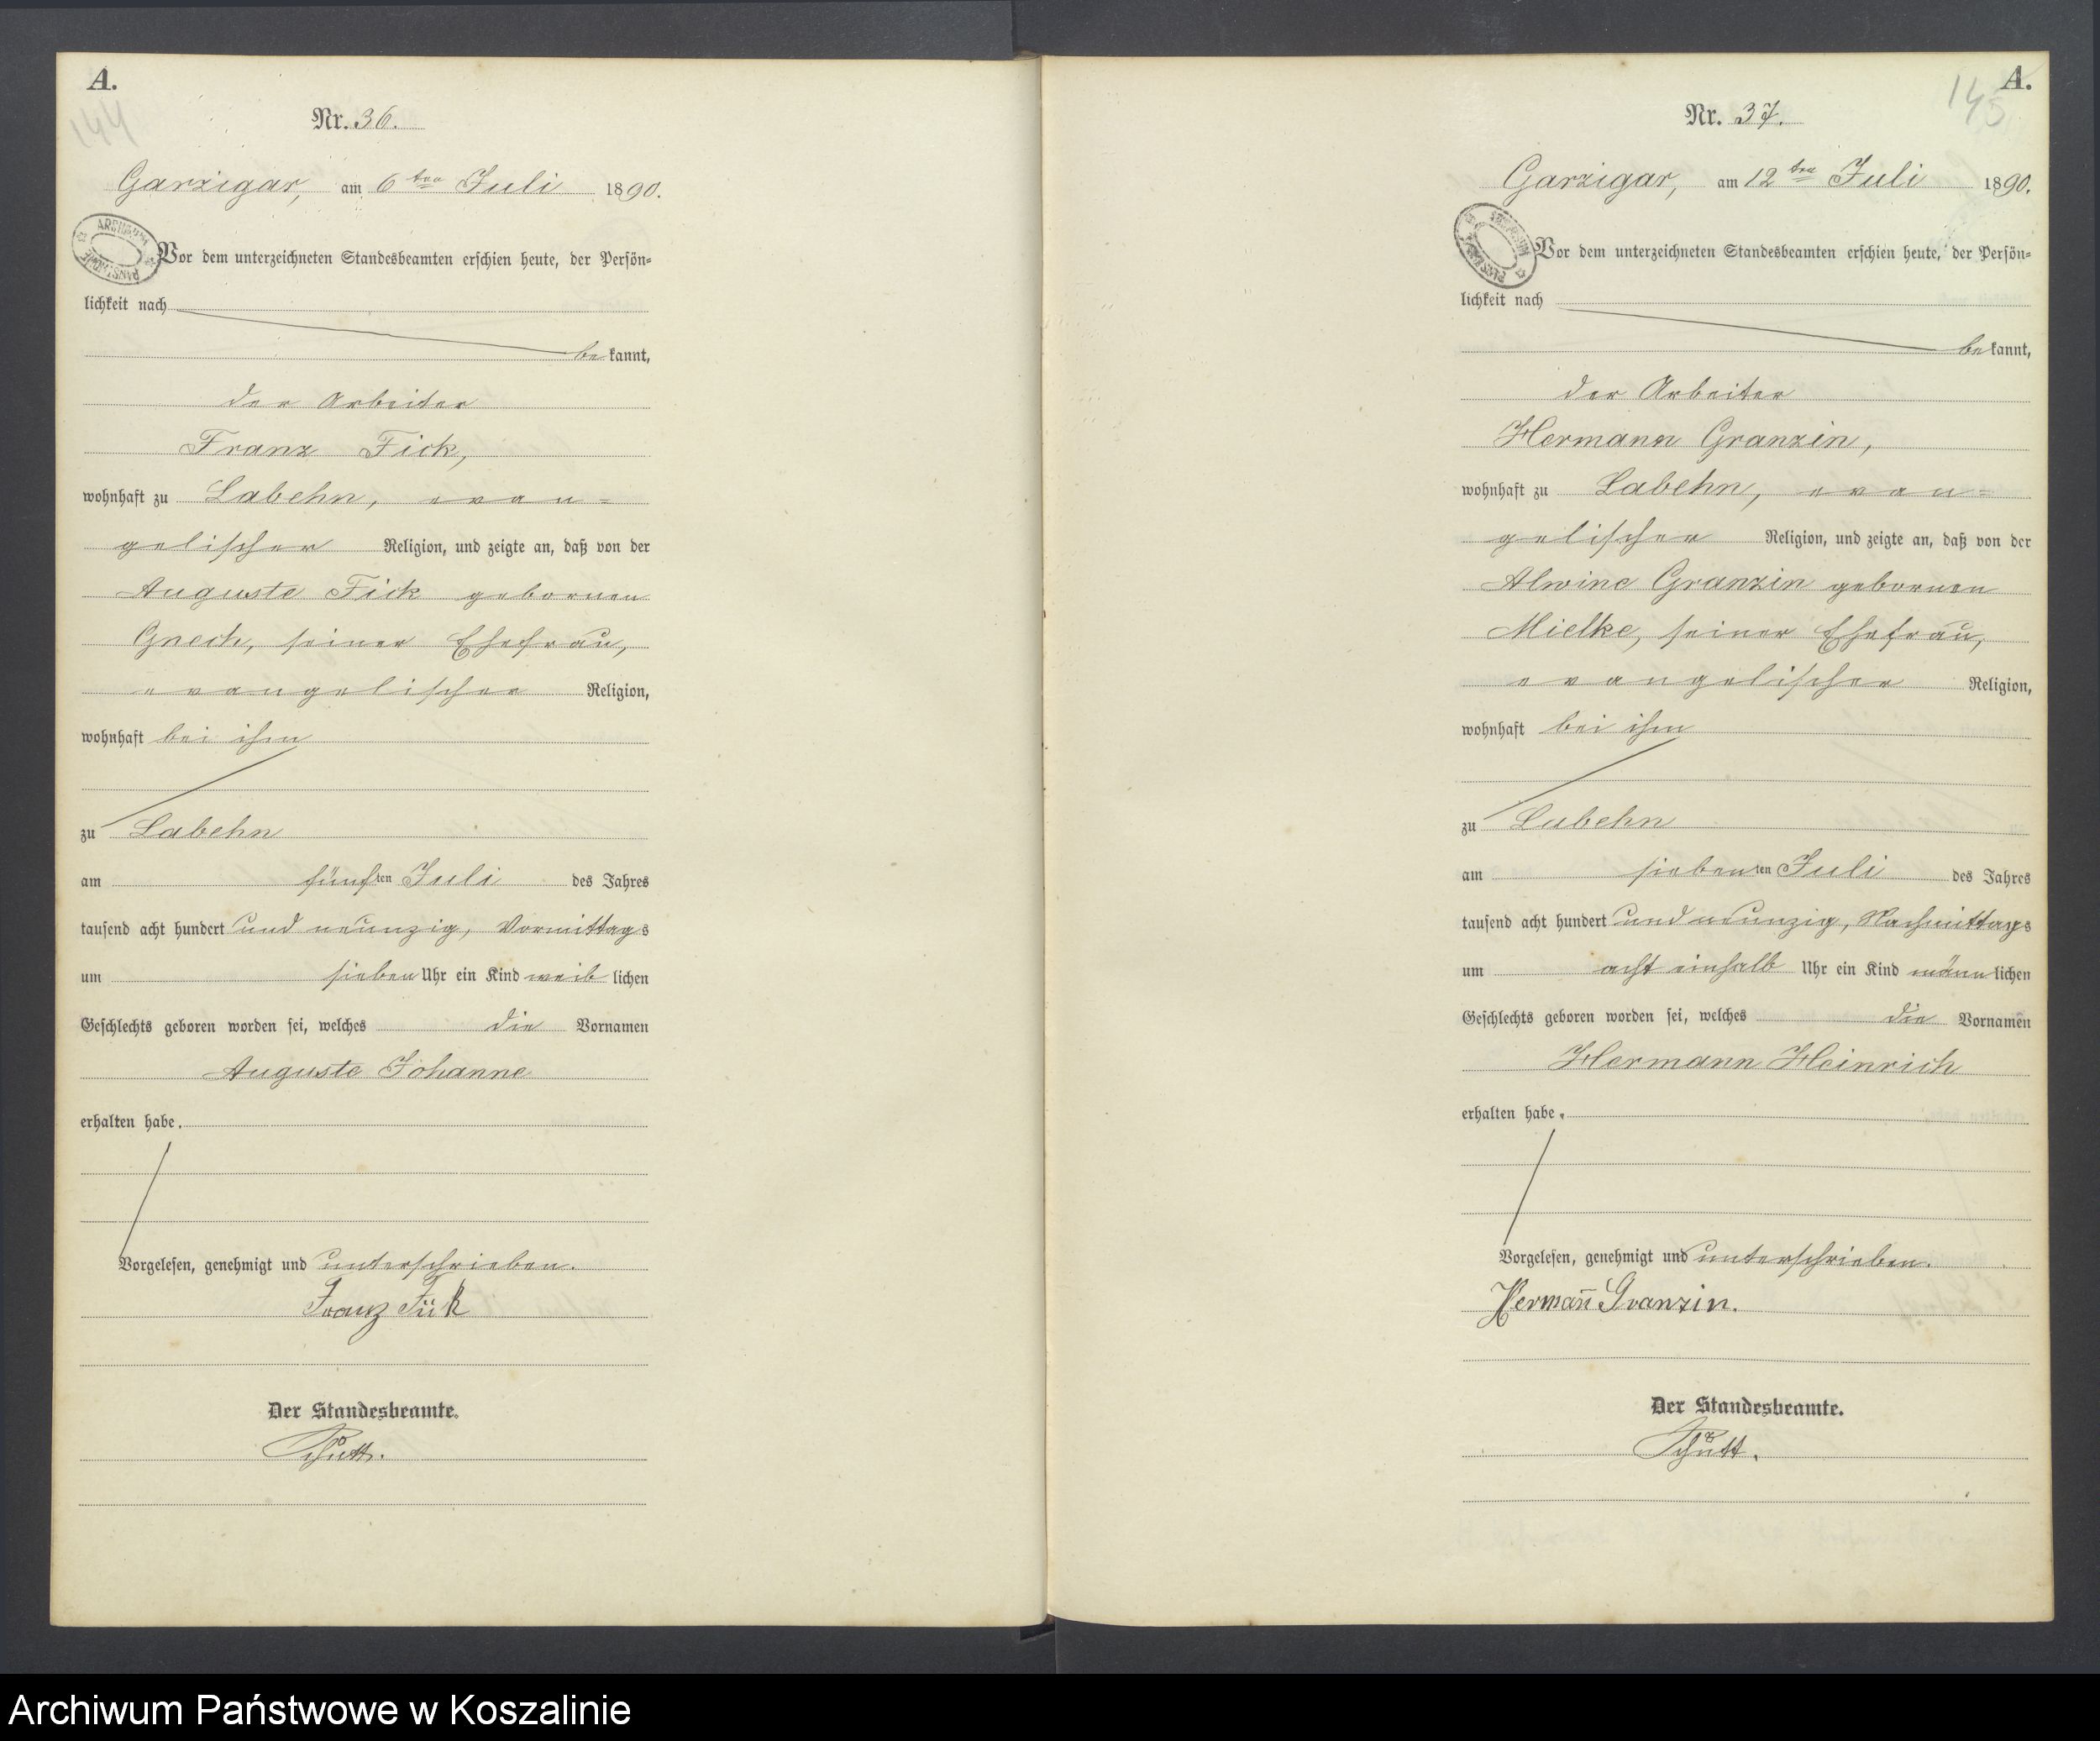 A.
144
Nr. 36.
Garzigar, am 6ten Juli 1890.
ARCHIWUM PAŃSTWOWE
Vor dem unterzeichneten Standesbeamten erschien heute, der Persön-
lichkeit nach
bekannt,
der Arbeiter
Franz Fick,
wohnhaft zu Labehn, evan-
gelischer Religion, und zeigte an, daß von der
Auguste Fick gebornen
Gnech, seiner Ehefrau,
evangelischer Religion,
wohnhaft bei ihm
zu Labehn
am fünften Juli des Jahres
tausend acht hundert und neunzig, Vormittags
um sieben Uhr ein Kind weiblichen
Geschlechts geboren worden sei, welches die Vornamen
Auguste Johanne
erhalten habe.
Vorgelesen, genehmigt und unterschrieben.
Franz Fick
Der Standesbeamte.
Schütt.
A.
145
Nr. 37.
Garzigar, am 12ten Juli 1890.
ARCHIWUM PAŃSTWOWE
Vor dem unterzeichneten Standesbeamten erschien heute, der Persön-
lichkeit nach
bekannt,
der Arbeiter
Hermann Granzin,
wohnhaft zu Labehn, evan-
gelischer Religion, und zeigte an, daß von der
Alwine Granzin gebornen
Mielke, seiner Ehefrau,
evangelischer Religion,
wohnhaft bei ihm
zu Labehn
am siebenten Juli des Jahres
tausend acht hundert und neunzig, Nachmittags
um acht einhalb Uhr ein Kind männlichen
Geschlechts geboren worden sei, welches die Vornamen
Hermann Heinrich
erhalten habe.
Vorgelesen, genehmigt und unterschrieben.
Herman̄ Granzin.
Der Standesbeamte.
Schütt.
Archiwum Państwowe w Koszalinie